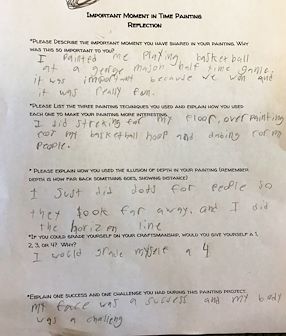 IMPORTANT MOMENT IN TIME PAINTING
REFLECTION
*PLEASE DESCRIBE THE IMPORTANT MOMENT YOU HAVE SHARED IN YOUR PAINTING. WHY
WAS THIS SO IMPORTANT TO YOU?
I Painted me Playing basketball
at a george mason half time game.
it was important because we won and
it was really fun.
*PLEASE LIST THE THREE PAINTING TECHNIQUES YOU USED AND EXPLAIN HOW YOU USED
EACH ONE TO MAKE YOUR PAINTING MORE INTERESTING.
I did streking for my floor, over painting
for my basketball hoop and dabing for my
People.
* PLEASE EXPLAIN HOW YOU USED THE ILLUSION OF DEPTH IN YOUR PAINTING (REMEMBER
DEPTH IS HOW FAR BACK SOMETHING GOES, SHOWING DISTANCE)
I Just did dots for people so
they look far away. and I did
the horizen line
*IF YOU COULD GRADE YOURSELF ON YOUR CRAFTSMANSHIP, WOULD YOU GIVE YOURSELF A 1,
2, 3, OR 4? WHY?
I would grade myself a 4
*EXPLAIN ONE SUCCESS AND ONE CHALLENGE YOU HAD DURING THIS PAINTING PROJECT.
my face was a success and my body
was a challeng